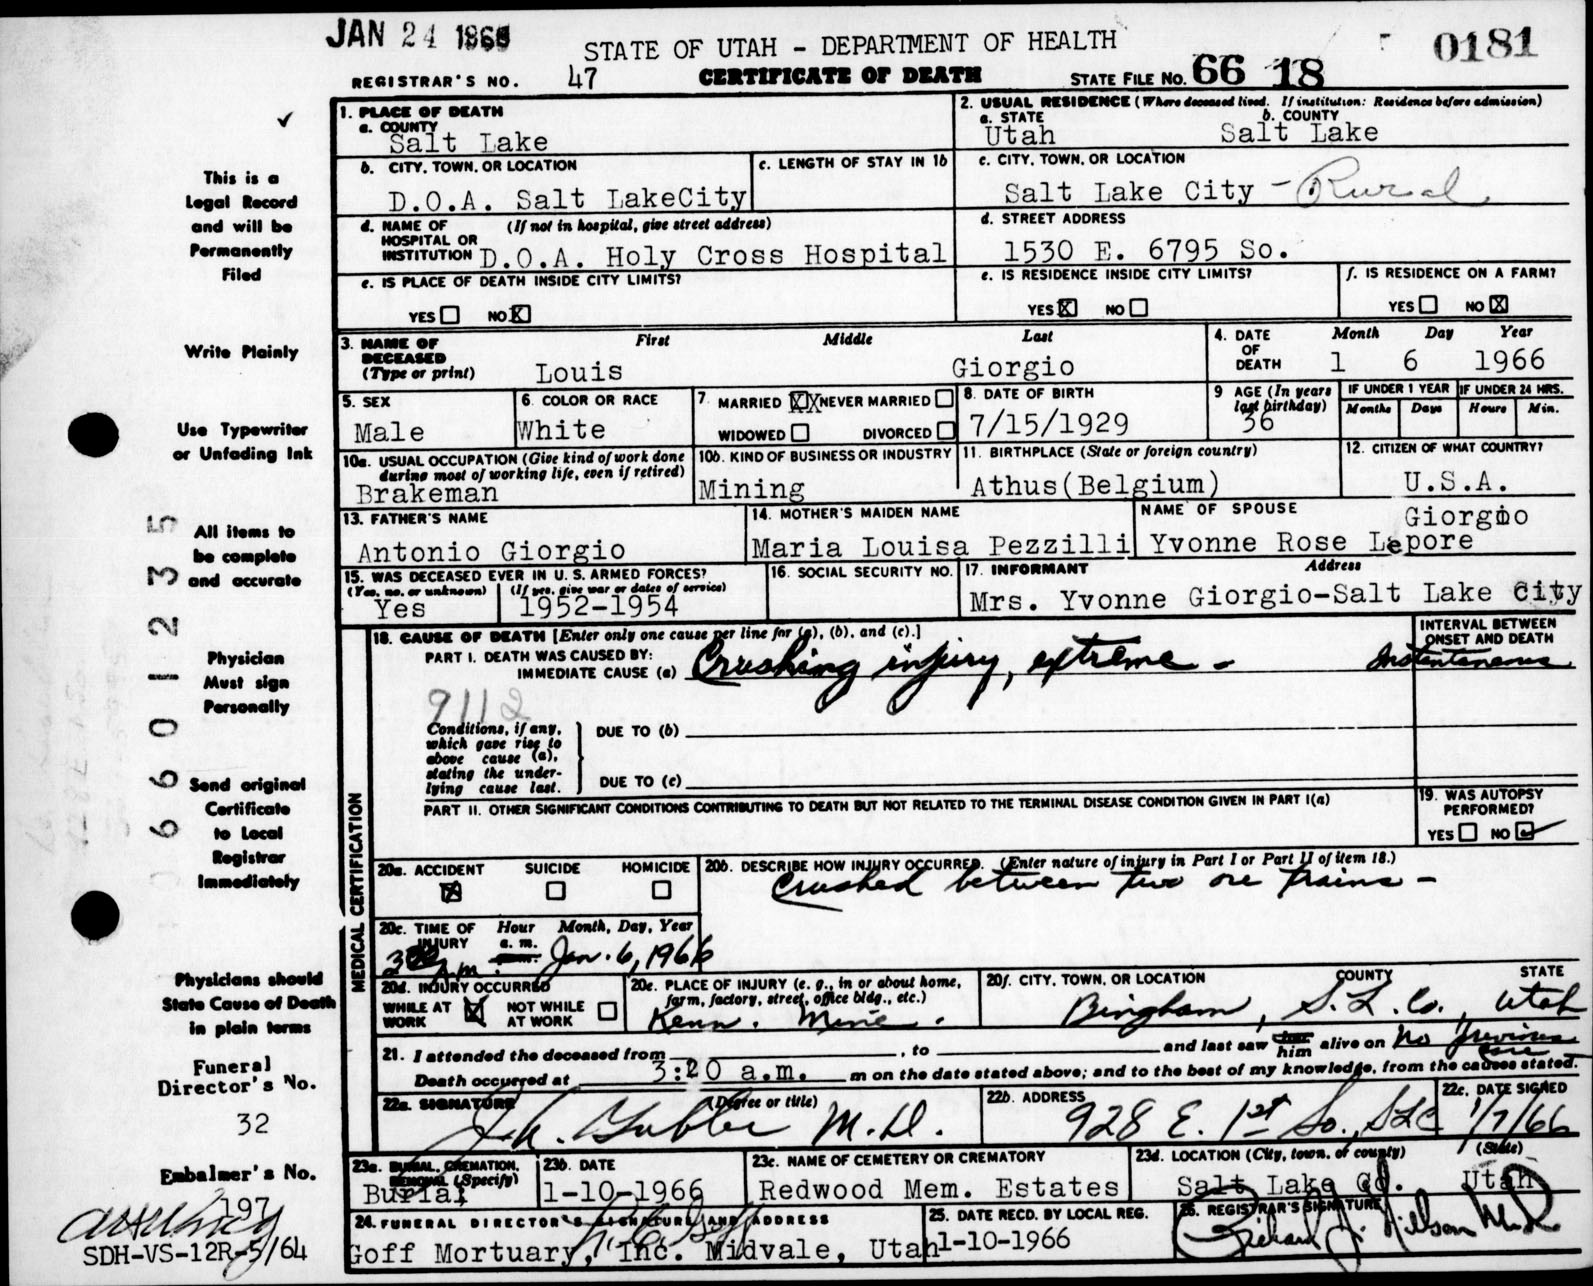 JAN 24 1966
STATE OF UTAH - DEPARTMENT OF HEALTH
0181
REGISTRAR'S NO. 47
CERTIFICATE OF DEATH
STATE FILE NO. 66 18
1. PLACE OF DEATH
a. COUNTY
Salt Lake
2. USUAL RESIDENCE (Where deceased lived. If institution: Residence before admission)
a. STATE b. COUNTY
Utah Salt Lake
b. CITY, TOWN, OR LOCATION
D.O.A. Salt LakeCity
c. LENGTH OF STAY IN 1b
c. CITY, TOWN, OR LOCATION
Salt Lake City - Rural
d. NAME OF (If not in hospital, give street address)
HOSPITAL OR
INSTITUTION D.O.A. Holy Cross Hospital
d. STREET ADDRESS
1530 E. 6795 So.
e. IS PLACE OF DEATH INSIDE CITY LIMITS?
YES NO X
e. IS RESIDENCE INSIDE CITY LIMITS?
YES X NO
f. IS RESIDENCE ON A FARM?
YES NO X
3. NAME OF First Middle Last
DECEASED
(Type or print) Louis Giorgio
4. DATE Month Day Year
OF
DEATH 1 6 1966
5. SEX
Male
6. COLOR OR RACE
White
7. MARRIED XX NEVER MARRIED
WIDOWED DIVORCED
8. DATE OF BIRTH
7/15/1929
9 AGE (In years
last birthday)
36
IF UNDER 1 YEAR IF UNDER 24 HRS.
Months Days Hours Min.
10a. USUAL OCCUPATION (Give kind of work done
during most of working life, even if retired)
Brakeman
10b. KIND OF BUSINESS OR INDUSTRY
Mining
11. BIRTHPLACE (State or foreign country)
Athus(Belgium)
12. CITIZEN OF WHAT COUNTRY?
U.S.A.
13. FATHER'S NAME
Antonio Giorgio
14. MOTHER'S MAIDEN NAME
Maria Louisa Pezzilli
NAME OF SPOUSE Giorgio
Yvonne Rose Lepore
15. WAS DECEASED EVER IN U. S. ARMED FORCES?
(Yes, no, or unknown) (If yes, give war or dates of service)
Yes 1952-1954
16. SOCIAL SECURITY NO.
17. INFORMANT Address
Mrs. Yvonne Giorgio-Salt Lake City
18. CAUSE OF DEATH [Enter only one cause per line for (a), (b), and (c).]
INTERVAL BETWEEN
ONSET AND DEATH
PART I. DEATH WAS CAUSED BY:
IMMEDIATE CAUSE (a) Crushing injury, extreme - Instantaneous
9112
Conditions, if any,
which gave rise to
above cause (a),
stating the under-
lying cause last.
DUE TO (b)
DUE TO (c)
PART II. OTHER SIGNIFICANT CONDITIONS CONTRIBUTING TO DEATH BUT NOT RELATED TO THE TERMINAL DISEASE CONDITION GIVEN IN PART I(a)
19. WAS AUTOPSY
PERFORMED?
YES NO
20a. ACCIDENT SUICIDE HOMICIDE
X
20b. DESCRIBE HOW INJURY OCCURRED. (Enter nature of injury in Part I or Part II of item 18.)
Crushed between two ore trains -
20c. TIME OF Hour Month, Day, Year
INJURY a. m.
Jan. 6, 1966
20d. INJURY OCCURRED
WHILE AT WORK X NOT WHILE AT WORK
20e. PLACE OF INJURY (e. g., in or about home,
farm, factory, street, office bldg., etc.)
Kenn. Mine.
20f. CITY, TOWN, OR LOCATION COUNTY STATE
Bingham, S.L. Co., Utah
21. I attended the deceased from , to and last saw him alive on No previous
care
Death occurred at 3:20 a.m. m on the date stated above; and to the best of my knowledge, from the causes stated.
22a. SIGNATURE (Degree or title)
M.D.
22b. ADDRESS
928 E. 1st So., SLC
22c. DATE SIGNED
1/7/66
23a. BURIAL, CREMATION,
REMOVAL (Specify)
Burial
23b. DATE
1-10-1966
23c. NAME OF CEMETERY OR CREMATORY
Redwood Mem. Estates
23d. LOCATION (City, town, or county) (State)
Salt Lake Co. Utah
24. FUNERAL DIRECTOR'S SIGNATURE AND ADDRESS
Goff Mortuary, Inc. Midvale, Utah
25. DATE RECD. BY LOCAL REG.
1-10-1966
26. REGISTRAR'S SIGNATURE
Richard J. Nielson M.D.
MEDICAL CERTIFICATION
This is a
Legal Record
and will be
Permanently
Filed
Write Plainly
Use Typewriter
or Unfading Ink
All items to
be complete
and accurate
Physician
Must sign
Personally
Send original
Certificate
to Local
Registrar
Immediately
Physicians should
State Cause of Death
in plain terms
Funeral
Director's No.
32
Embalmer's No.
197
SDH-VS-12R-5/64
6601235